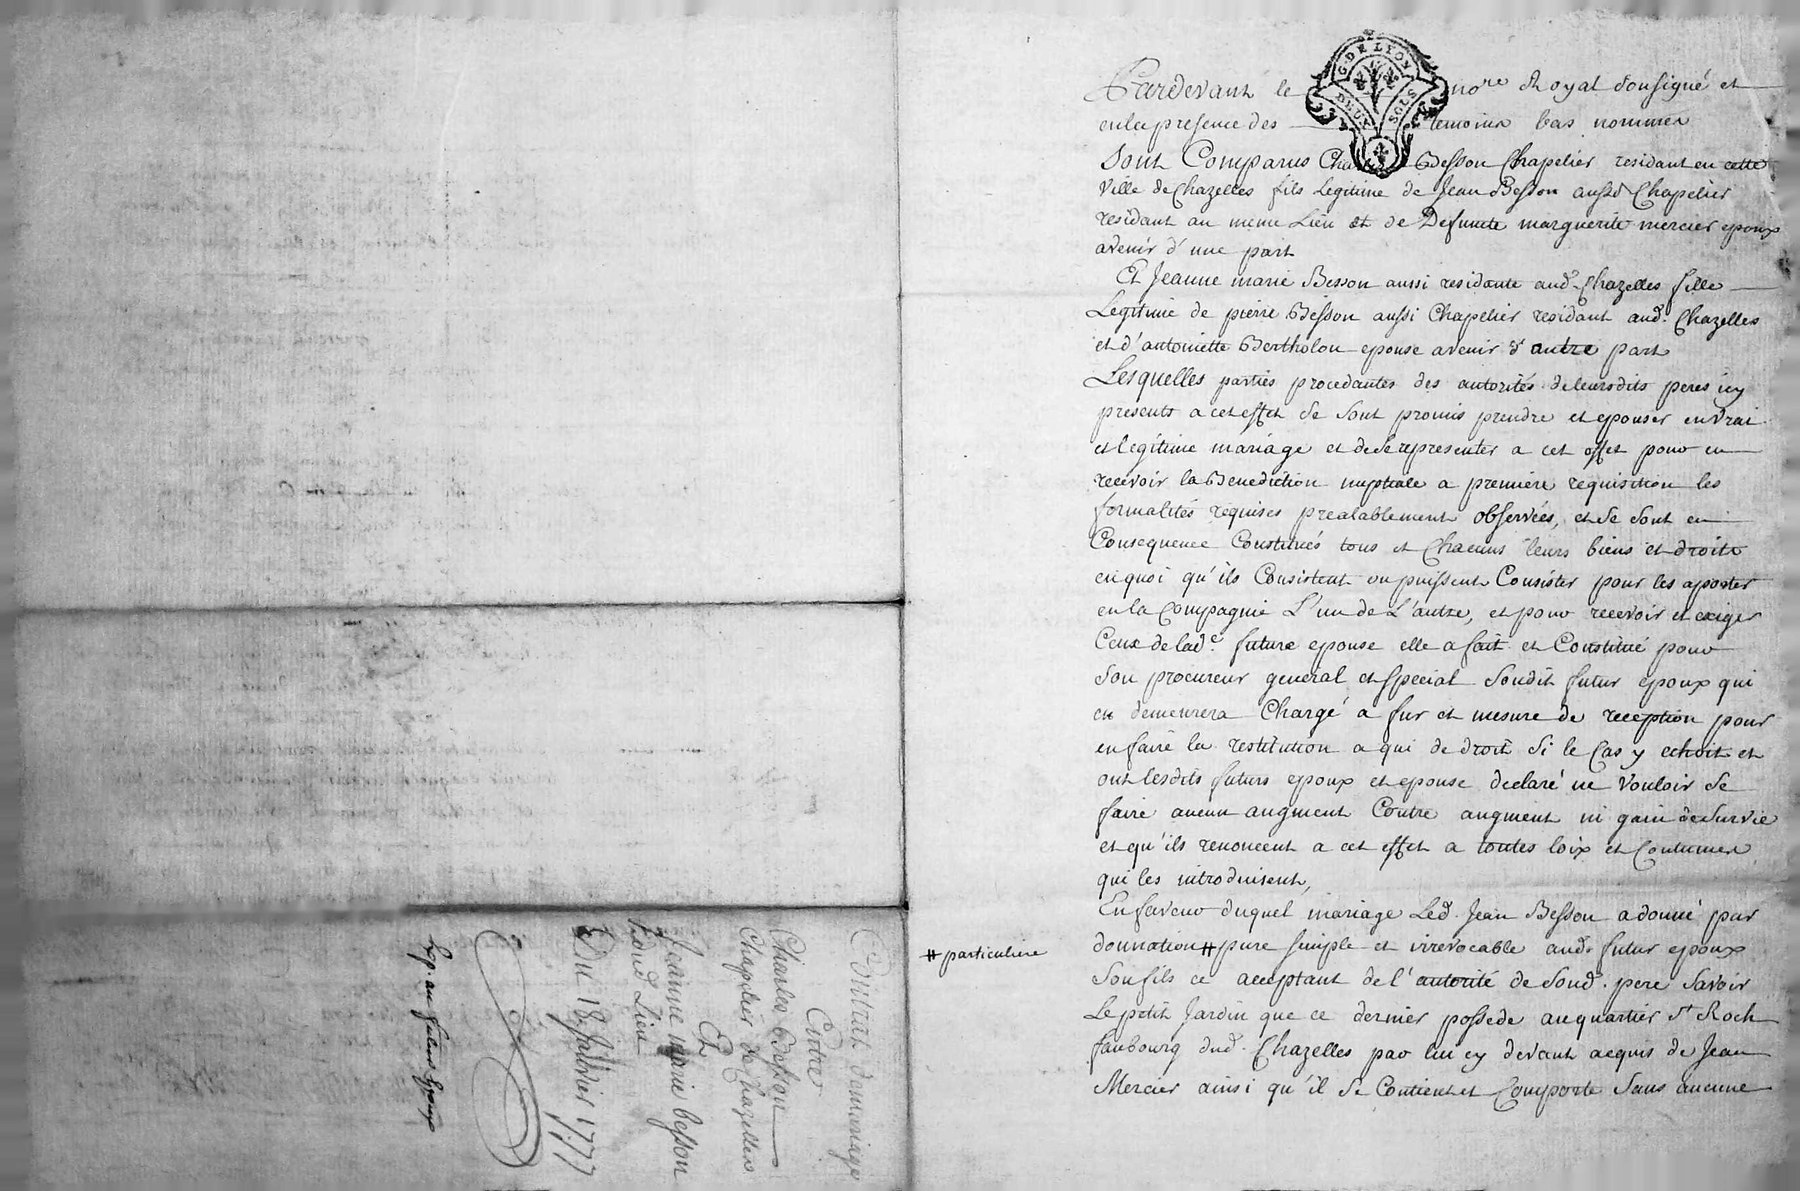 G. DE LYON
DEUX SOLS
Pardevant le no.re Royal Sousigné et
en la presence des temoins bas nommés
Sont Comparus Charles Besson Chapelier residant en cette
Ville de Chazelles fils Legitime de Jean Besson aussi Chapelier
residant au meme Lieu et de Defunte marguerite mercier epoux
avenir d'une part
Et Jeanne marie Besson aussi residante aud. Chazelles fille
Legitime de pierre Besson aussi Chapelier residant aud. Chazelles
et d'antoinette Bertholon epouse avenir d'autre part
Lesquelles parties procedantes des autorités de leursdits peres icy
presents a cet effet se sont promis prendre et epouser en vrai
et legitime mariage et de se representer a cet effet pour en
recevoir la Benediction nuptiale a premiere requisition les
formalités requises prealablement observées, et se sont en
Consequence Constitués tous et Chacuns leurs biens et droits
en quoi qu'ils Consistent ou puissent Consister pour les aporter
en la Compagnie L'un de L'autre, et pour recevoir et exiger
Ceux de lad.e future epouse elle a fait et Constitué pour
Son procureur general et special Sondit futur epoux qui
en demeurera Chargé a fur et mesure de reception pour
en faire la restitution a qui de droit Si le Cas y echoit et
ont lesdits futurs epoux et epouse declaré ne Vouloir Se
faire aucun augment Contre augment ni gain de Survie
et qu'ils renoncent a cet effet a toutes loix et Coutumes
qui les introduisent,
En faveur duquel mariage Led. Jean Besson a donné par
donnation # pure simple et irrevocable aud. futur epoux
# particuliere
Son fils ce acceptant de l'autorité de Sond. pere Savoir
Le petit Jardin que ce dernier possede au quartier St Roch
faubourg dud. Chazelles par lui cy devant acquis de Jean
Mercier ainsi qu'il Se Contient et Comporte Sans aucune
Contrat de mariage
Entre
Charles Besson
Chapelier de Chazelles
Et
Jeanne marie besson
dud Lieu
Du 18 fabvrier 1777
Exp au futur Epoux